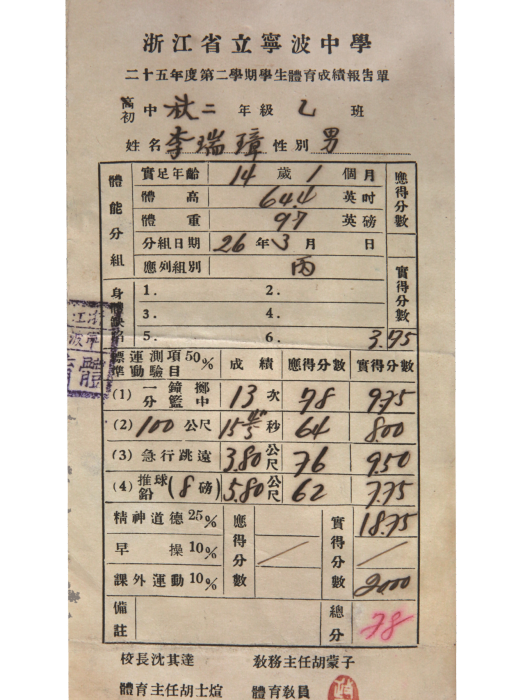 浙江省立寧波中學
二十五年度第二學期學生體育成績報告單
高初中 秋二 年級 乙 班
姓名 李瑞璋 性別 男
體能分組 實足年齡 14 歲 1 個月 應得分數
體高 64.4 英吋
體重 97 英磅
分組日期 26 年 3 月 日
應列組別 丙 實得分數
身體缺陷 1. 2.
3. 4.
5. 6. 3.75
標準運動測驗項目50% 成績 應得分數 實得分數
(1) 一分鐘擲籃中 13 次 78 9.75
(2) 100 公尺 15 秒 64 8.00
(3) 急行跳遠 3.80 公尺 76 9.50
(4) 推鉛球(8磅) 5.80 公尺 62 7.75
精神道德25% 應得分數 實得分數 18.75
早操10%
課外運動10% 20.00
備註 總分 78
校長沈其達 教務主任胡蒙子
體育主任胡士煊 體育教員